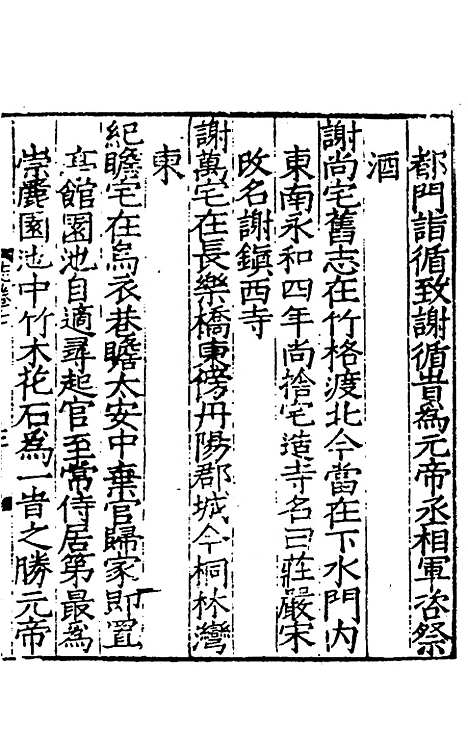 都門詣循致謝循貴為元帝丞相軍咨祭
酒
謝尚宅舊志在竹格渡北今當在下水門内
東南永和四年尚捨宅造寺名曰莊嚴宋
改名謝鎮西寺
謝萬宅在長樂橋東傍丹陽郡城今桐林灣
東
紀瞻宅在烏衣巷瞻太安中棄官歸家即置
立館園池自適尋起官至常侍居第最為
崇麗園池中竹木花石為一旹之勝元帝